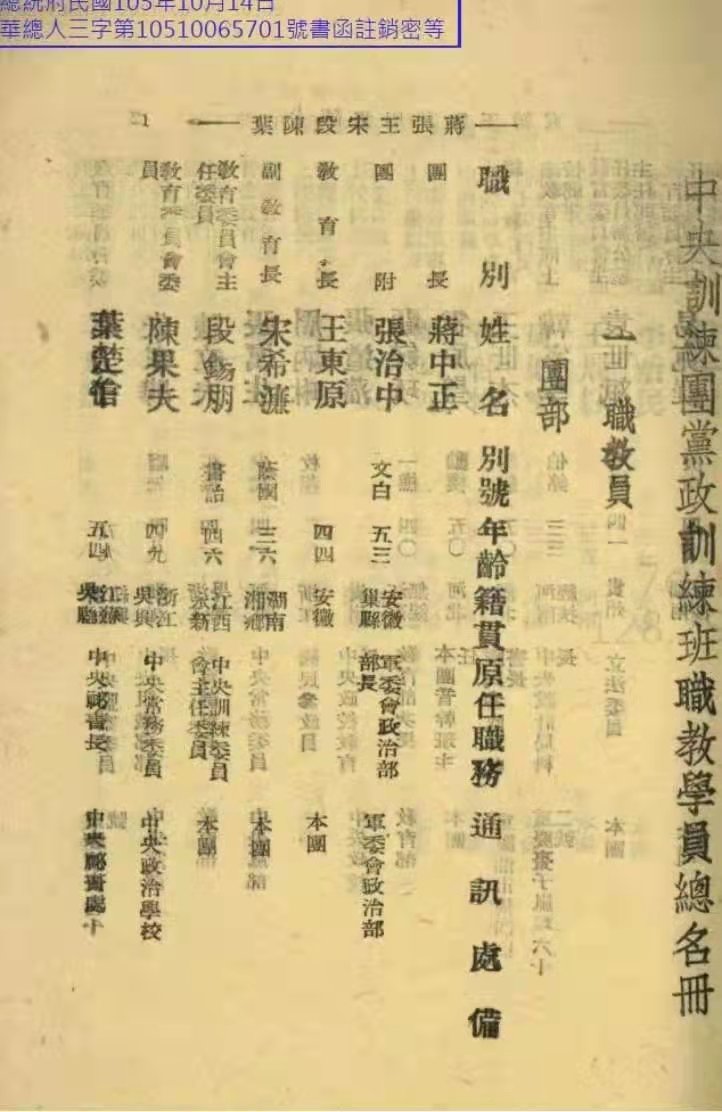 總統府民國105年10月14日
華總人三字第10510065701號書函註銷密等
中央訓練團黨政訓練班職教學員總名冊
一 職教員
團部
職別 姓名 別號 年齡 籍貫 原任職務 通訊處 備
蔣張王宋段陳葉 1
團長 蔣中正
團附 張治中 文白 五三 安徽巢縣 軍委會政治部部長 軍委會政治部
教育長 王東原 四四 安徽 本團
副教育長 宋希濂 蔭國 三六 湖南湘鄉 本團
教育委員會主任委員 段錫朋 書詒 四六 江西永新 中央訓練委員會主任委員 本團
教育委員會委員 陳果夫 四九 浙江吳興 中央常務委員 中央政治學校
葉楚傖 五四 江蘇吳縣 中央祕書長 中央祕書處